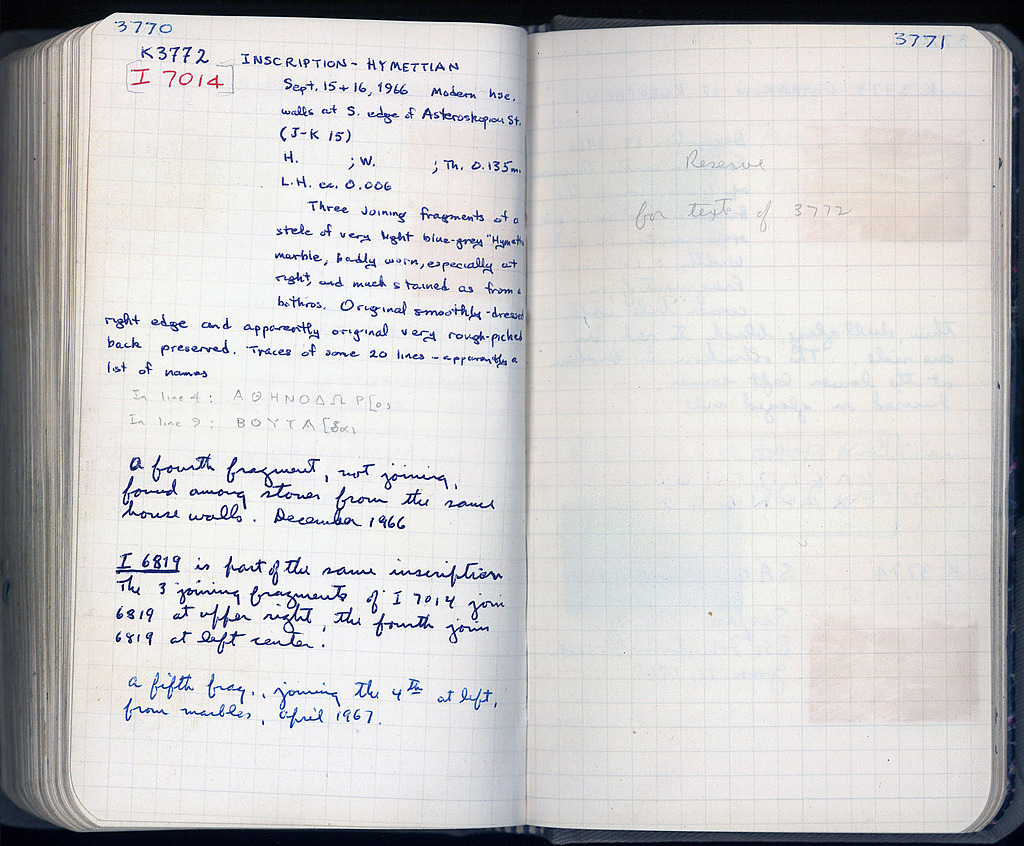 3770
K3772 INSCRIPTION - HYMETTIAN
I 7014
Sept. 15+16, 1966 Modern hse.
walls at S. edge of Asteroskopiou St.
(J-K 15)
H. ; W. ; Th. 0.135m.
L.H. ca. 0.006
Three joining fragments of a
stele of very light blue-grey "Hymett
marble, badly worn, especially at
right, and much stained as from a
bothros. Original smoothly-dressed
right edge and apparently original very rough-picked
back preserved. Traces of some 20 lines - apparently a
list of names
In line 4: ΑΘΗΝΟΔΩΡ[ος
In line 9: ΒΟΥΤΑ[δαι
A fourth fragment, not joining,
found among stones from the same
house walls. December 1966
I 6819 is part of the same inscription
The 3 joining fragments of I 7014 join
6819 at upper right, the fourth joins
6819 at left center.
A fifth frag., joining the 4th at left,
from marbles, April 1967.
3771
Reserve
for text of 3772